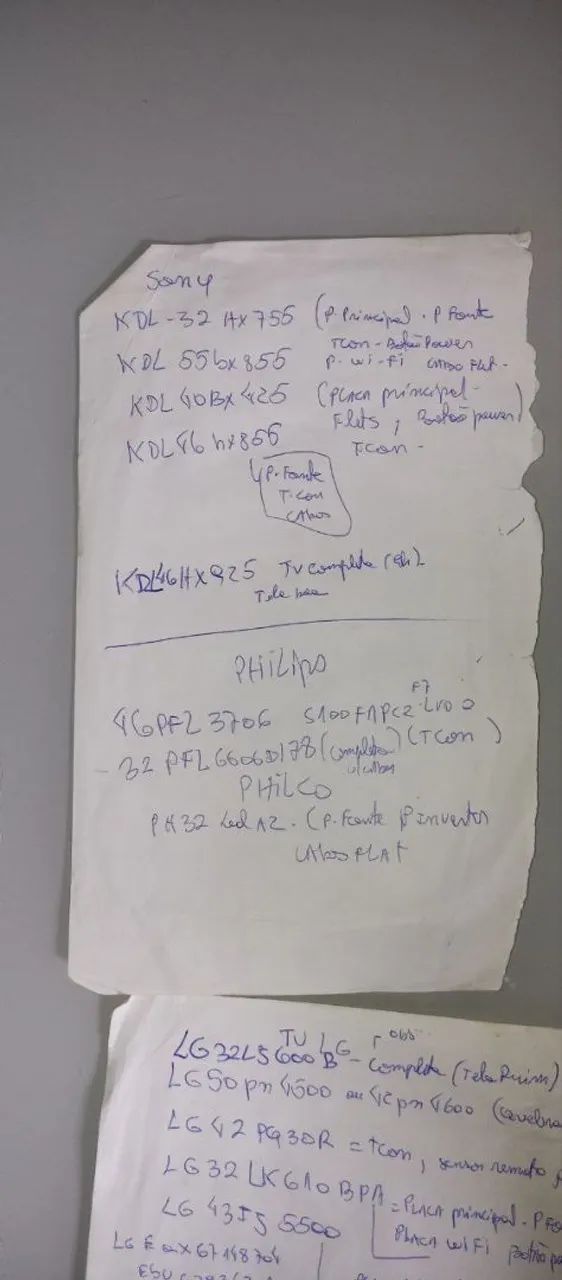 Sony
KDL-32HX755 (P. Principal. P Fonte
Tcon - Botão Power
KDL 55hx855 P. Wi-Fi CABO FLAT -
KDL 40BX425 (PLACA principal -
Flets, Botão power)
KDL46hx855 T.con -
P. Fonte
T-con
CAbos
KDL46HX925 TV completa
Tela boa
PHiLips
F7
46PFL3706 S100FAPC2 LV0
32 PFL6606D/78 (completa) (TCon)
PHiLCO
PH32 Led A2. (P. Fonte P inverter
CAbo FLAT
TV LG obs
LG32LS600B - Completa (Tela Ruim)
LG50pn4500 ou 42pn4600
LG42PQ30R = tcon, sensor remoto
LG32LK610BPA = PLACA principal - P Fo
LG 43Jj5500 PLACA WiFi Botão po